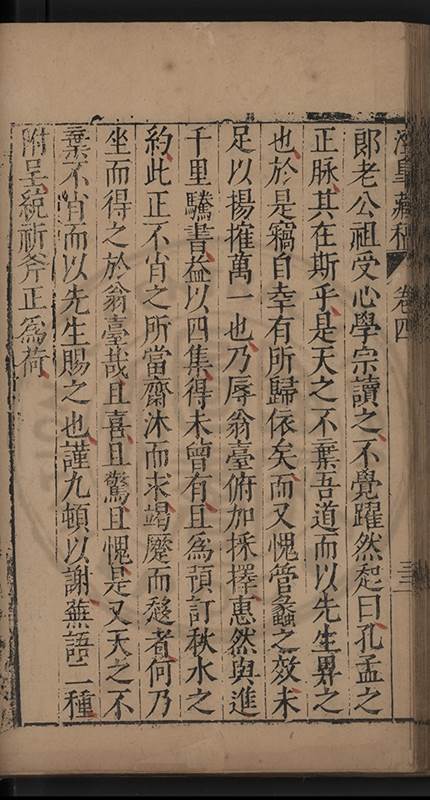 澄皇藏稿 卷四
郎老公祖受心學宗讀之不覺躍然起曰孔孟之
正脉其在斯乎是天之不棄吾道而以先生畀之
也於是竊自幸有所歸依矣而又愧管蠡之效未
足以揚搉萬一也乃辱翁臺俯加採擇惠然與進
千里驕書益以四集得未曾有且為預訂秋水之
約此正不肖之所當齋沐而求竭蹙而趍者何乃
坐而得之於翁臺哉且喜且驚且愧是又天之不
棄不肖而以先生賜之也謹九頓以謝蕪語二種
附呈統祈斧正為荷